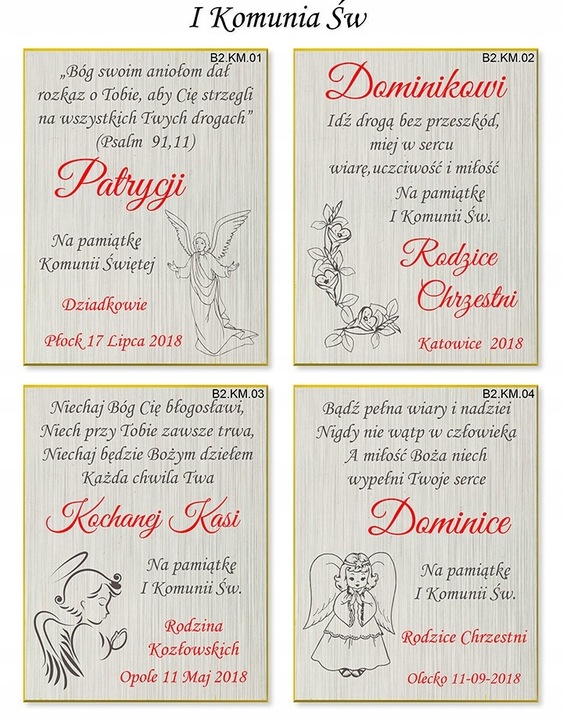 I Komunia Św
B2.KM.01
„Bóg swoim aniołom dał
rozkaz o Tobie, aby Cię strzegli
na wszystkich Twych drogach”
(Psalm 91,11)
Patrycji
Na pamiątkę
Komunii Świętej
Dziadkowie
Płock 17 Lipca 2018
B2.KM.02
Dominikowi
Idź drogą bez przeszkód,
miej w sercu
wiarę,uczciwość i miłość
Na pamiątkę
I Komunii Św.
Rodzice
Chrzestni
Katowice 2018
B2.KM.03
Niechaj Bóg Cię błogosławi,
Niech przy Tobie zawsze trwa,
Niechaj będzie Bożym dziełem
Każda chwila Twa
Kochanej Kasi
Na pamiątkę
I Komunii Św.
Rodzina
Kozłowskich
Opole 11 Maj 2018
B2.KM.04
Bądź pełna wiary i nadziei
Nigdy nie wątp w człowieka
A miłość Boża niech
wypełni Twoje serce
Dominice
Na pamiątkę
I Komunii Św.
Rodzice Chrzestni
Olecko 11-09-2018